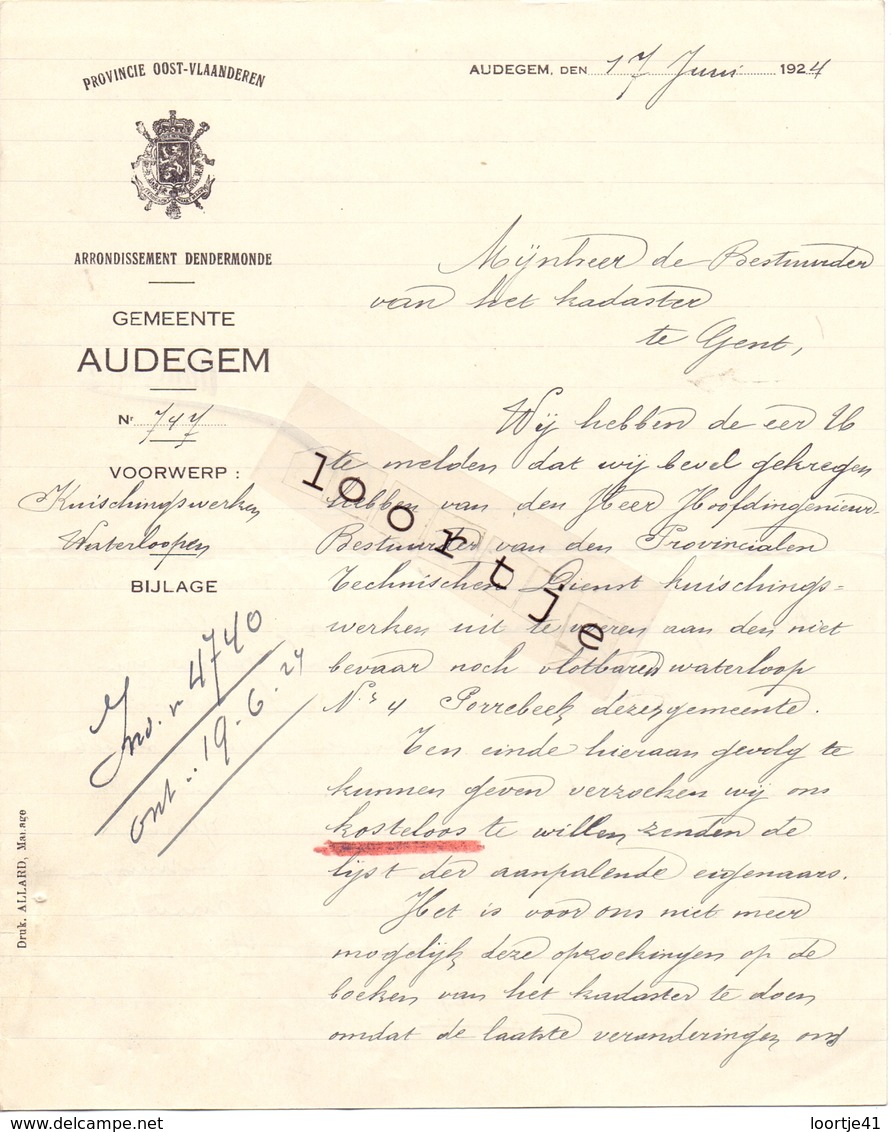 PROVINCIE OOST-VLAANDEREN
AUDEGEM, DEN 17 Juni 1924
ARRONDISSEMENT DENDERMONDE
GEMEENTE
AUDEGEM
Nr 747
VOORWERP :
Kuischingswerken
Waterloopen
BIJLAGE
Inv. n 4740
ont. : 19-6-24
Druk. ALLARD, Mariage
Mijnheer de Bestuurder
van het kadaster
te Gent,
Wij hebben de eer U
te melden dat wij bevel gekregen
hebben van den Heer Hoofdingenieur-
Bestuurder van den Provincialen
Technischen Dienst kuischings=
werken uit te voeren aan den niet
bevaar noch vlotbaren waterloop
Nr 4 Porrebeek dezer gemeente.
Ten einde hieraan gevolg te
kunnen geven verzoeken wij ons
kosteloos te willen zenden de
lijst der aanpalende eigenaars.
Het is voor ons niet meer
mogelijk deze opzoekingen op de
boeken van het kadaster te doen
omdat de laatste veranderingen ons
loortje
delcampe.net
loortje41